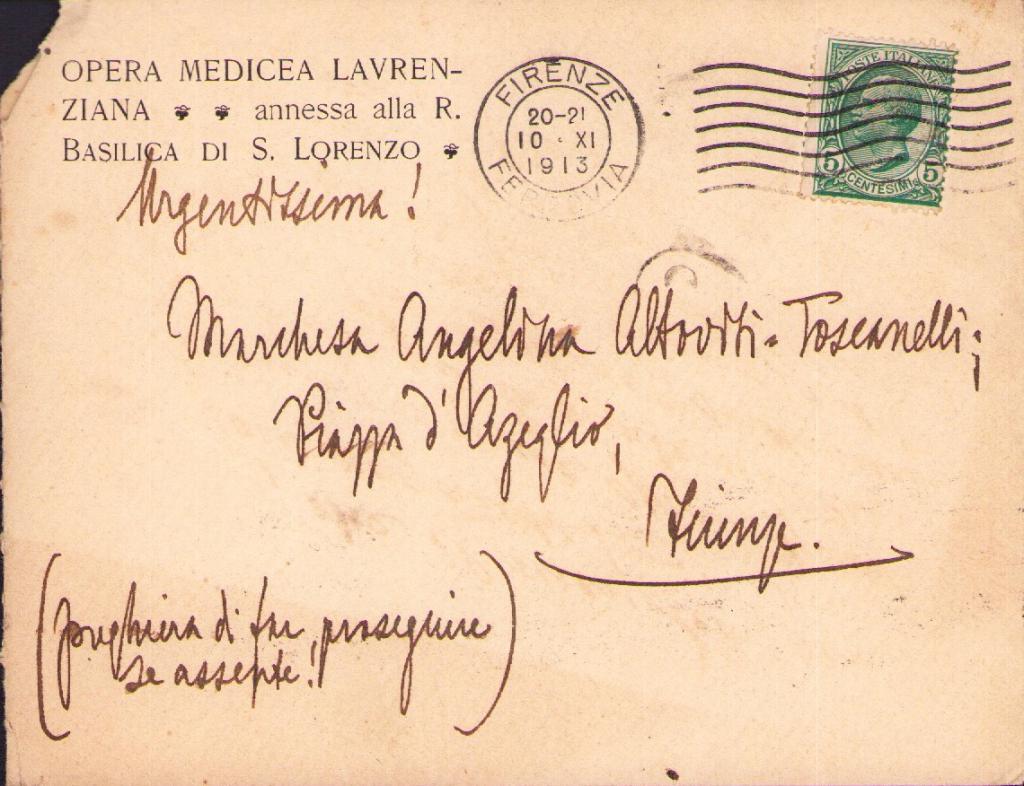 OPERA MEDICEA LAVREN-
ZIANA annessa alla R.
BASILICA DI S. LORENZO
FIRENZE
20-21
10 · XI
1913
FERROVIA
POSTE ITALIANE
5 CENTESIMI 5
Urgentissima!
Marchesa Angelina Altoviti-Toscanelli;
Piazza d'Azeglio,
Firenze.
(preghiera di far proseguire
se assente!)